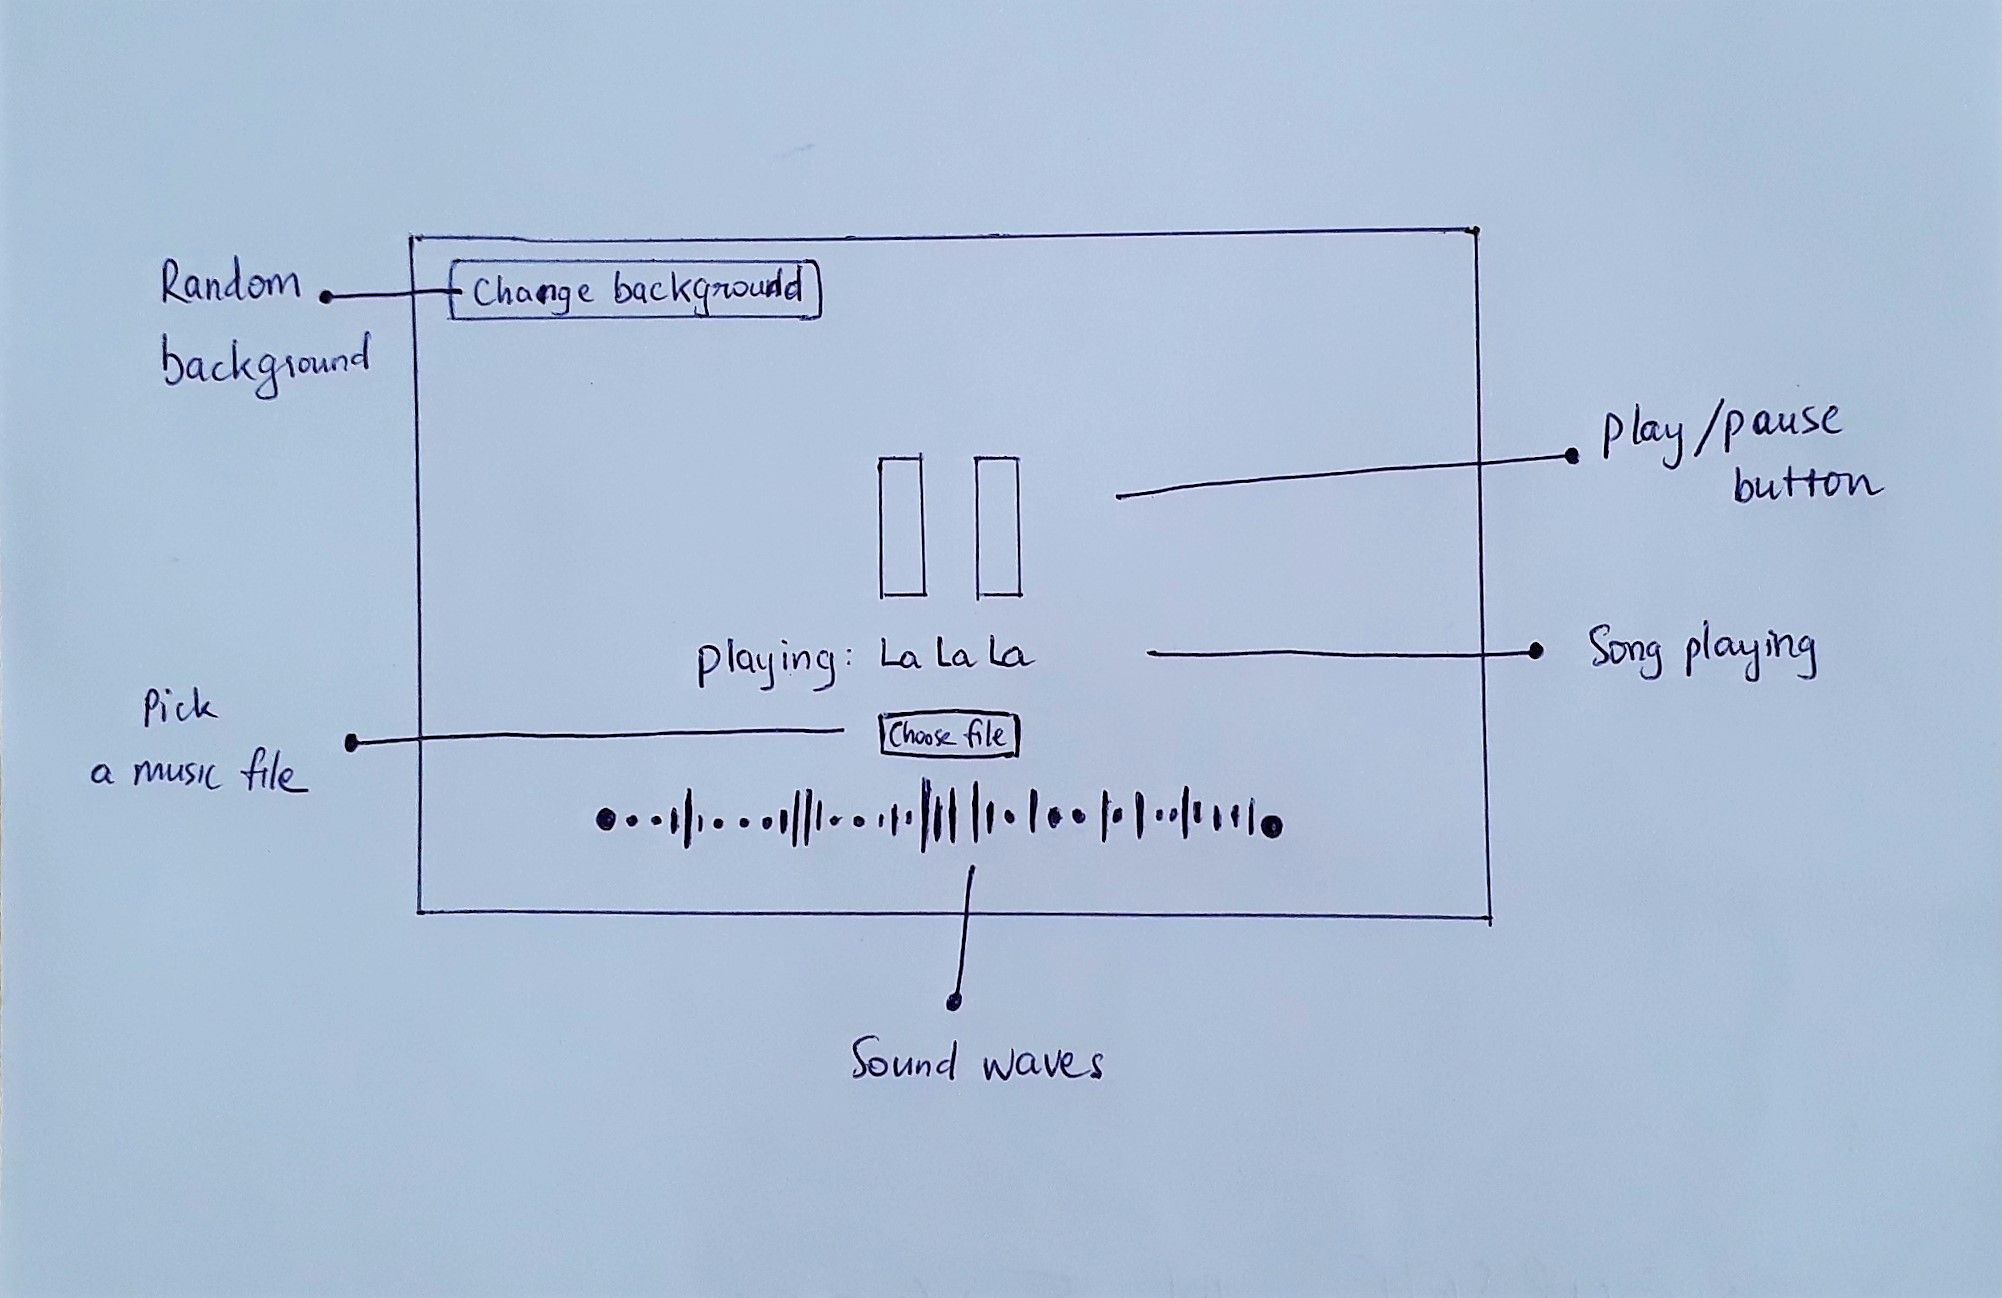 Random
background
Change background
play/pause
button
playing: La La La
Song playing
Pick
a music file
Choose file
Sound waves